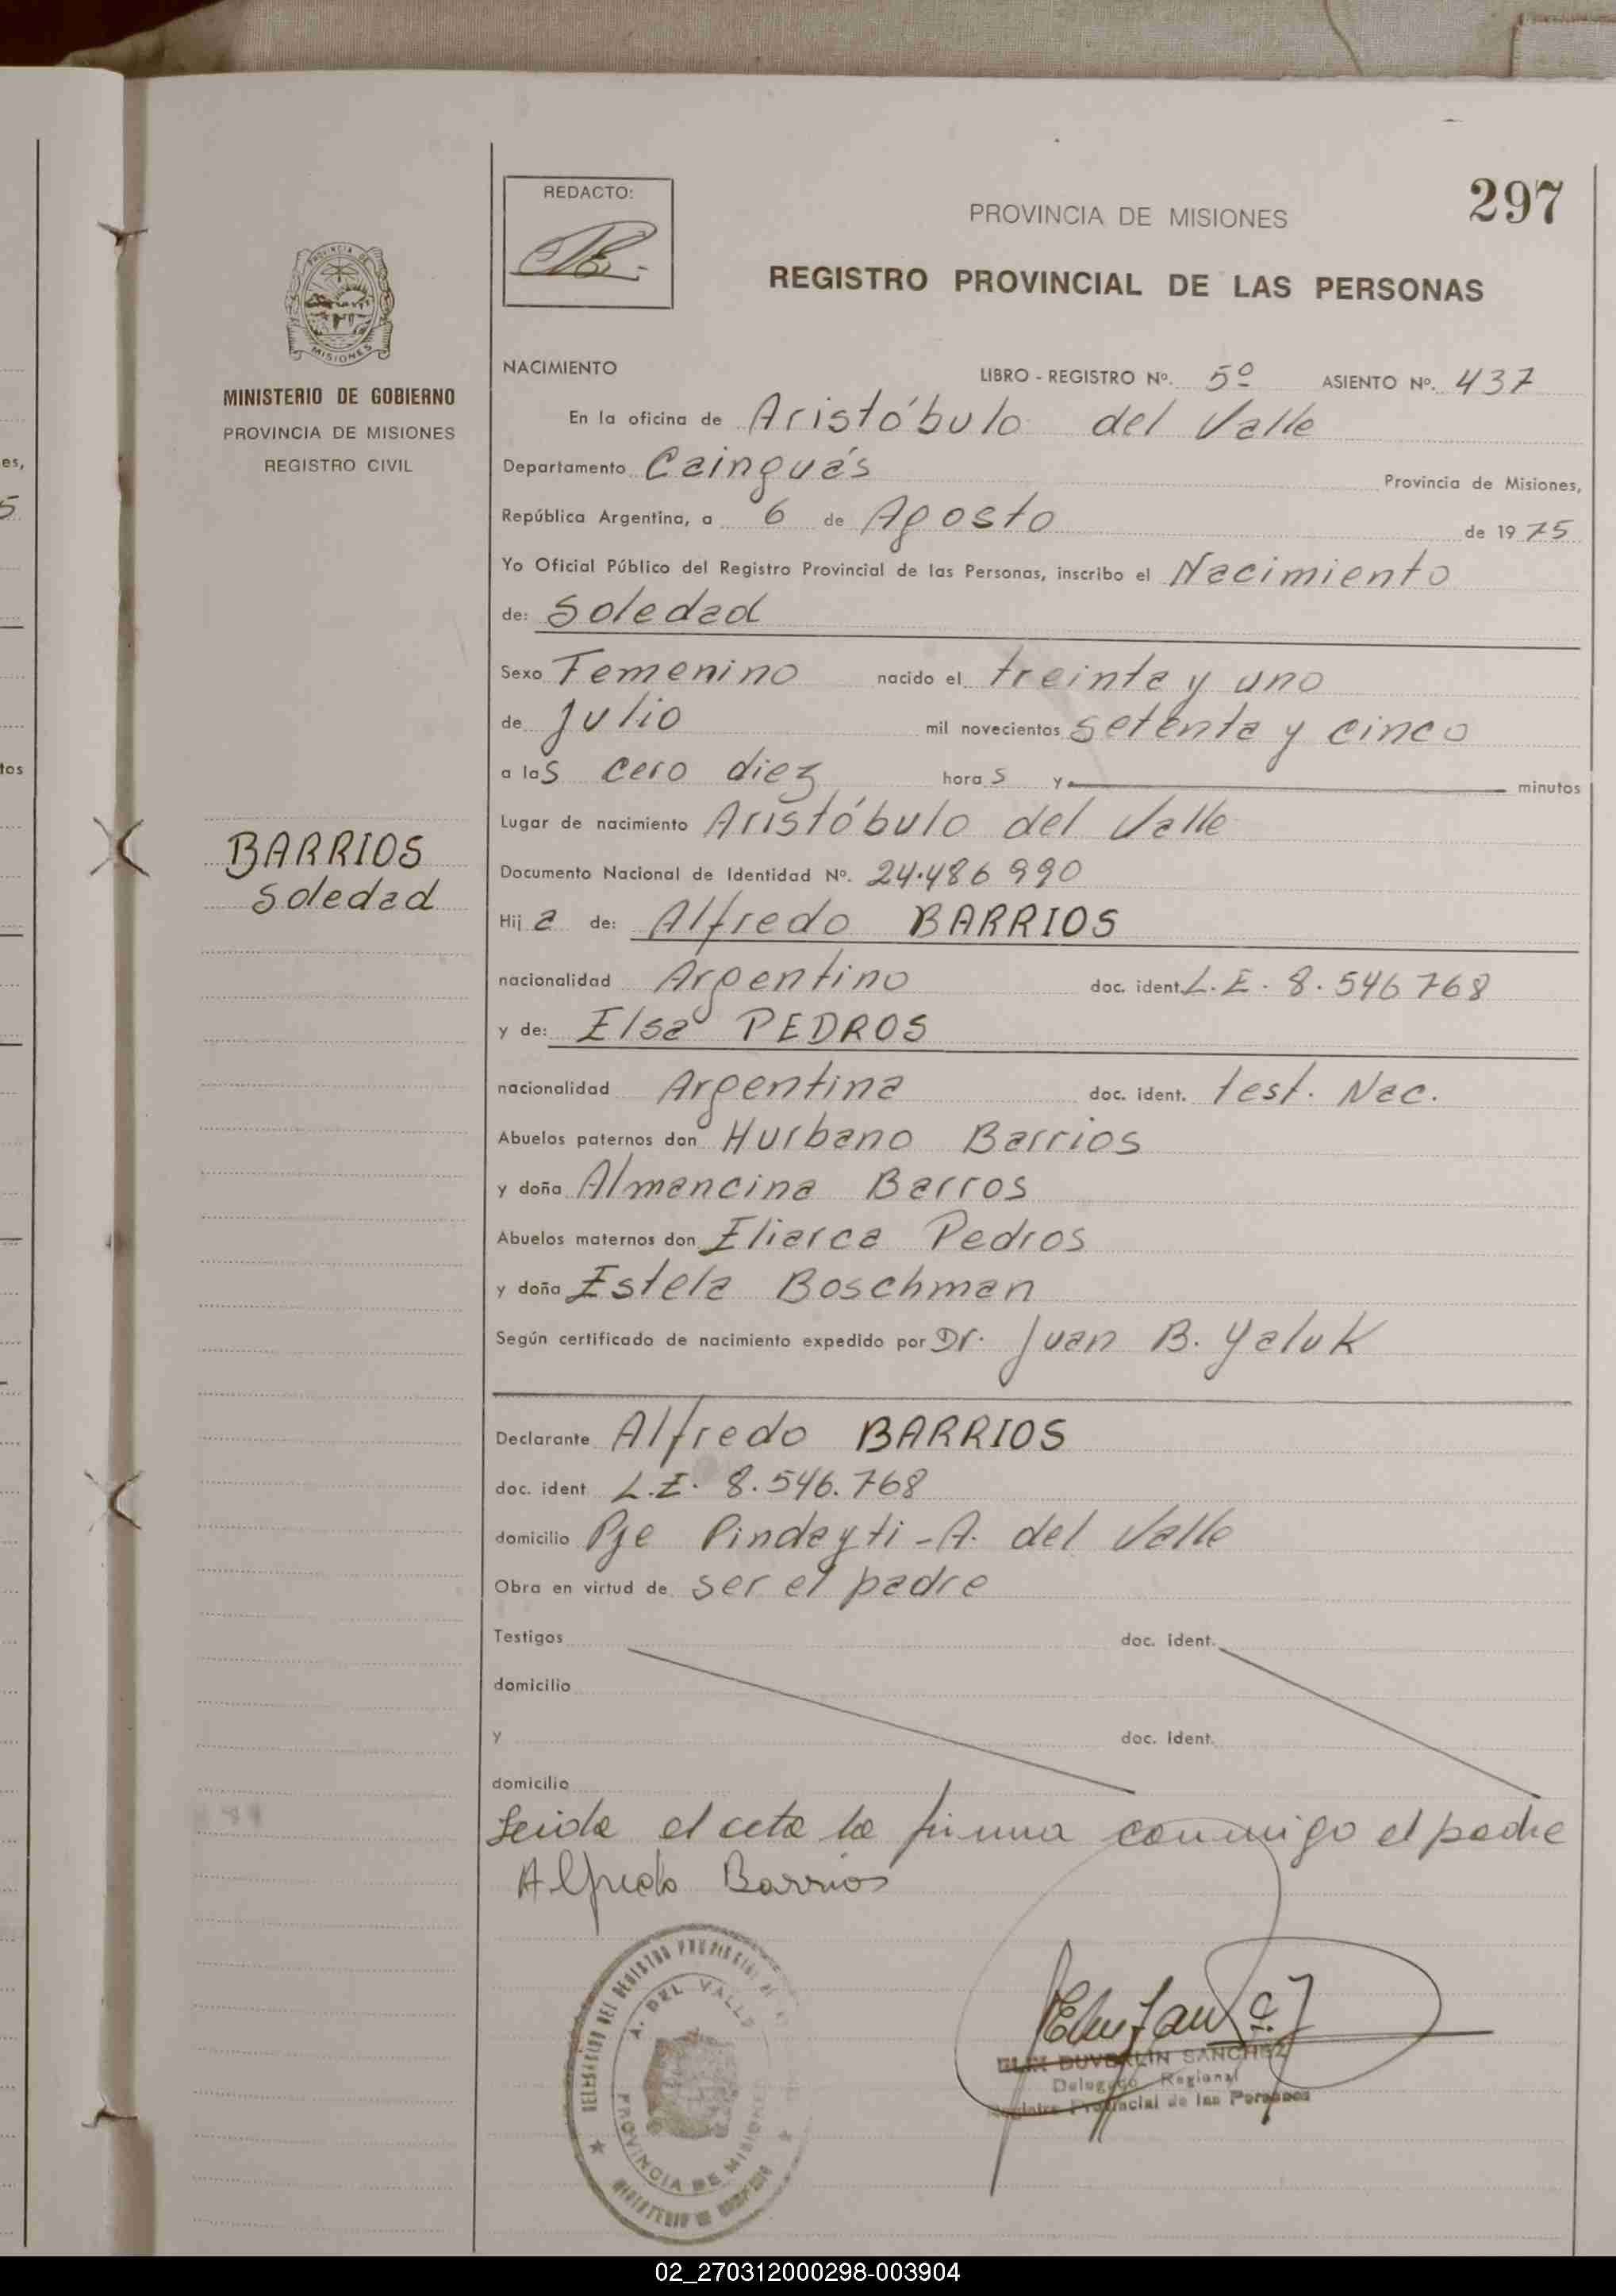 297
REDACTO:
PROVINCIA DE MISIONES
REGISTRO PROVINCIAL DE LAS PERSONAS
PROVINCIA DE
MISIONES
MINISTERIO DE GOBIERNO
PROVINCIA DE MISIONES
REGISTRO CIVIL
BARRIOS
Soledad
NACIMIENTO LIBRO - REGISTRO Nº. 5º ASIENTO Nº. 437
En la oficina de Aristóbulo del Valle
Departamento Cainguás Provincia de Misiones,
República Argentina, a 6 de Agosto de 1975
Yo Oficial Público del Registro Provincial de las Personas, inscribo el Nacimiento
de: Soledad
Sexo Femenino nacido el treinta y uno
de Julio mil novecientos setenta y cinco
a las cero diez horas y minutos
Lugar de nacimiento Aristóbulo del Valle
Documento Nacional de Identidad Nº. 24.486990
Hija de: Alfredo BARRIOS
nacionalidad Argentino doc. ident. L.E. 8.546768
y de: Elsa PEDROS
nacionalidad Argentina doc. ident. test. Nac.
Abuelos paternos don Hurbano Barrios
y doña Almancina Barros
Abuelos maternos don Eliarca Pedros
y doña Estela Boschman
Según certificado de nacimiento expedido por Dr. Juan B. Yaluk
Declarante Alfredo BARRIOS
doc. ident L.E. 8.546.768
domicilio Pje Pindayti - A. del Valle
Obra en virtud de ser el padre
Testigos doc. ident.
domicilio
y doc. ident.
domicilio
Leida el acta la firma conmigo el padre
Alfredo Barrios
DELEGACION DEL REGISTRO PROVINCIAL DE
A. DEL VALLE
PROVINCIA DE MISIONES
MINISTERIO DE GOBIERNO
DUVERLIN SANCHEZ
Delegado Regional
Registro Provincial de las Personas
es,
5
tos
02_270312000298-003904